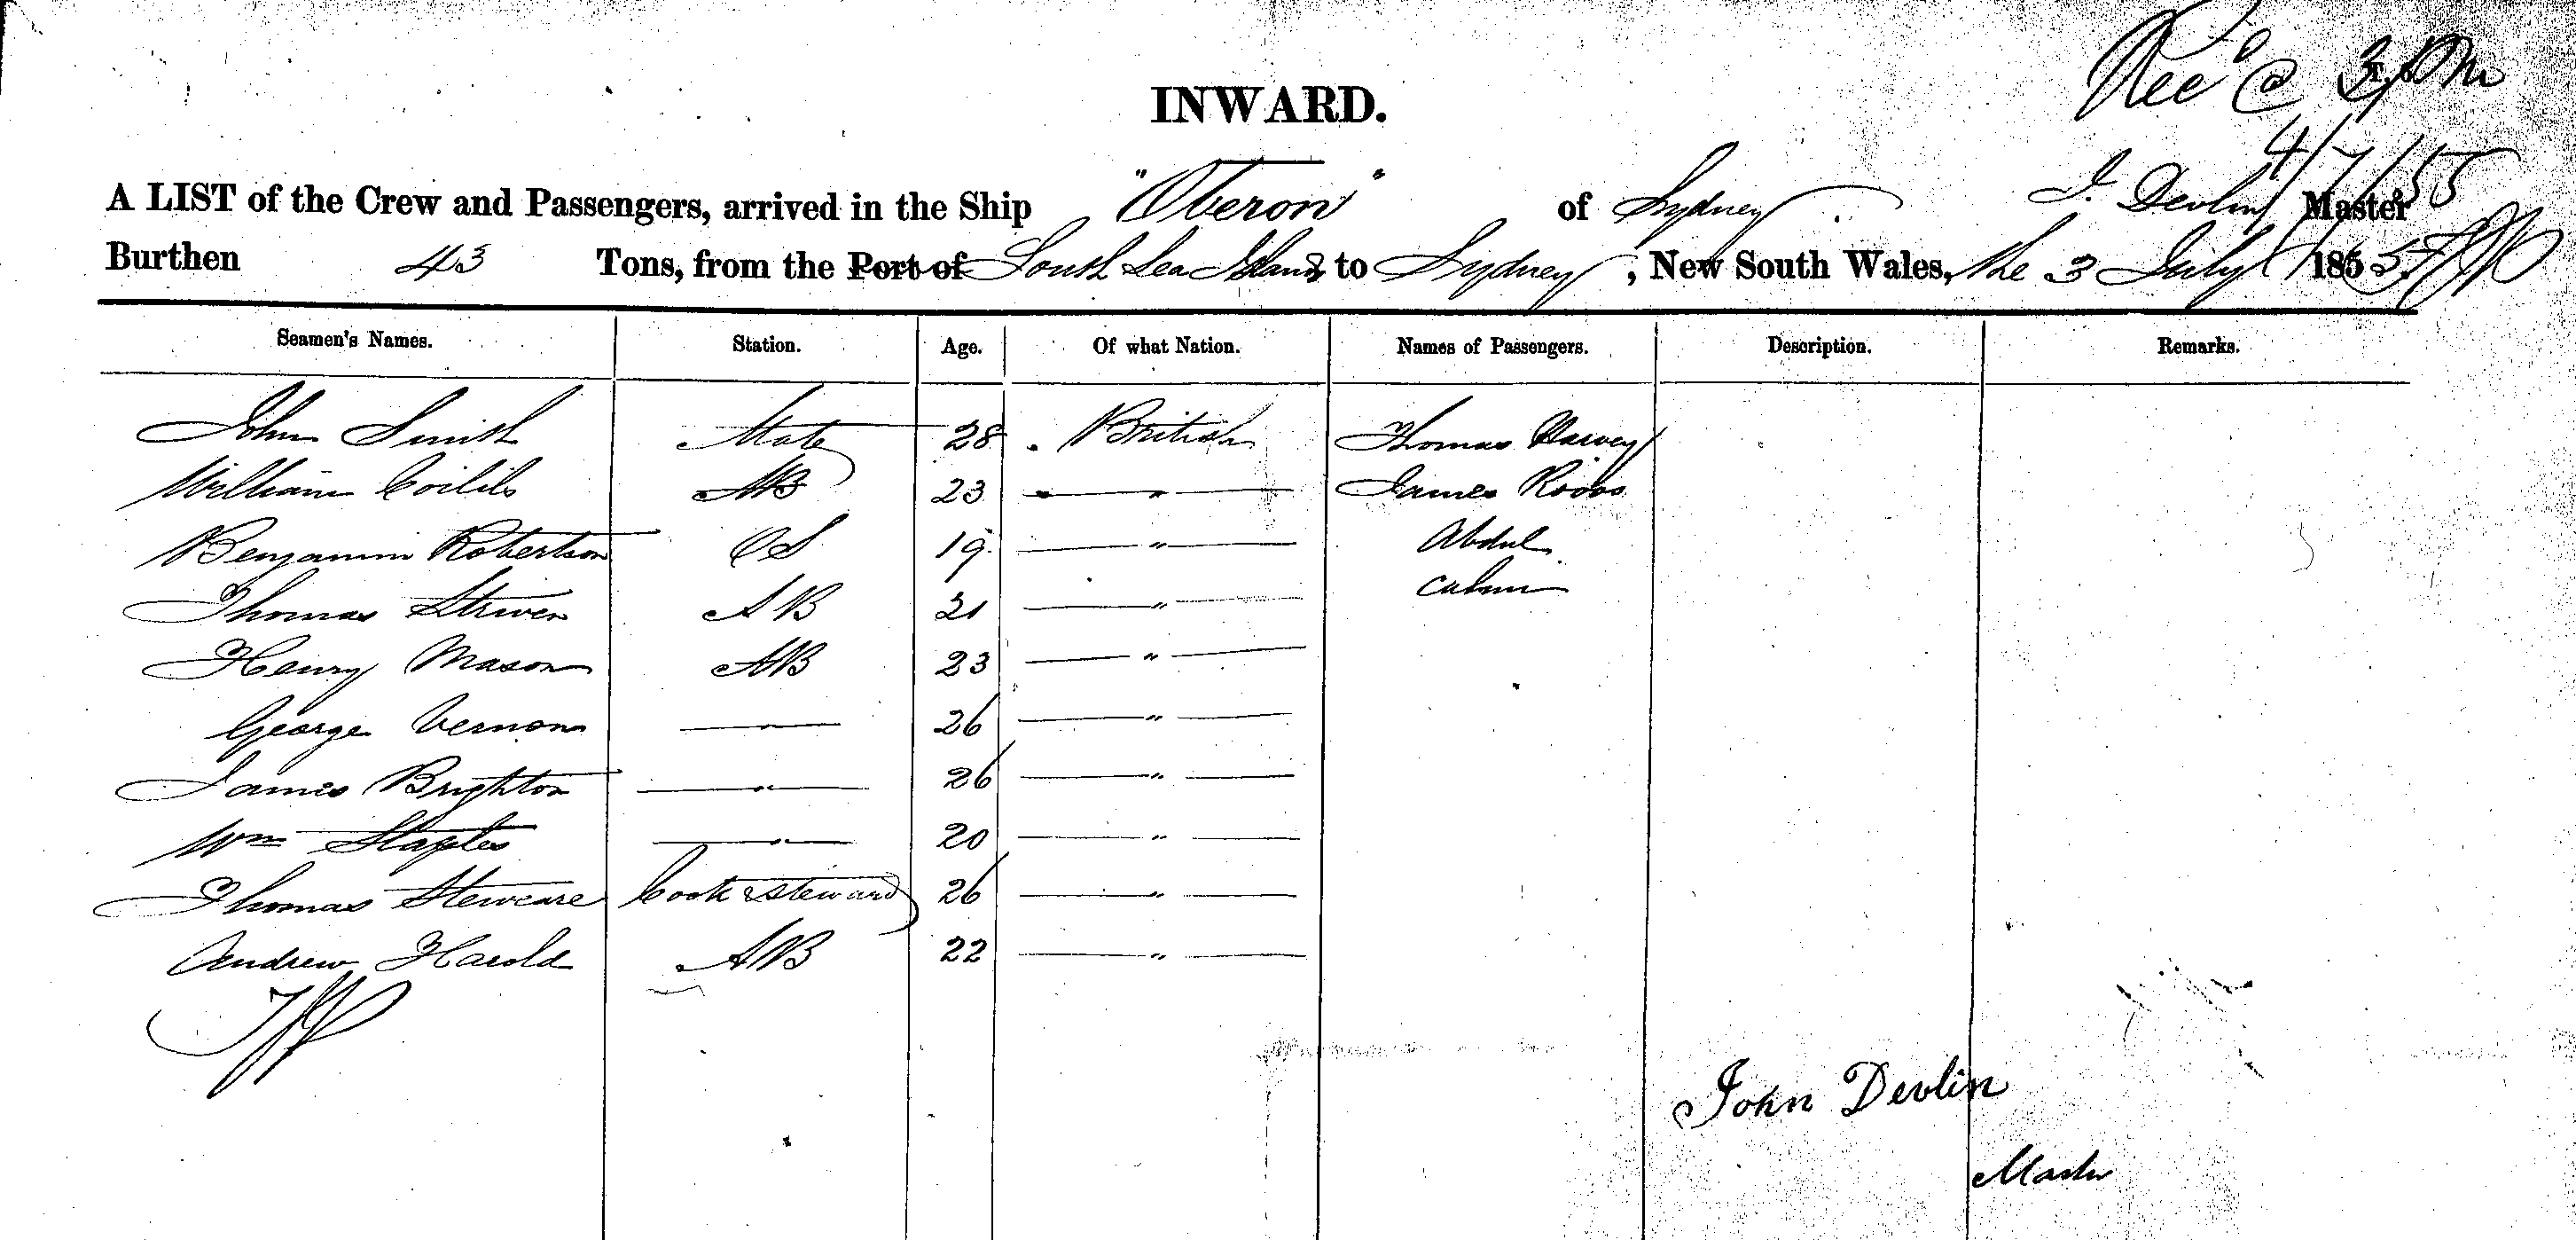 Rec @ 3 PM
4/7/55
INWARD.
A LIST of the Crew and Passengers, arrived in the Ship "Oberon" of Sydney J. Devlin Master
Burthen 43 Tons, from the Port of South Sea Islands to Sydney, New South Wales, the 3 July 1855
Seamen's Names. Station. Age. Of what Nation. Names of Passengers. Description. Remarks.
John Smith Mate 28 British Thomas Harvey
William AB 23 " James
Benjamin Robertson OS 19 " Abdul
Thomas Striven AB 21 "
Henry Mason AB 23 "
George Vernon " 26 "
James Brighton " 26 "
Wm Staples " 20 "
Thomas Cook & Steward 26 "
Andrew Harold AB 22 "
John Devlin
Master